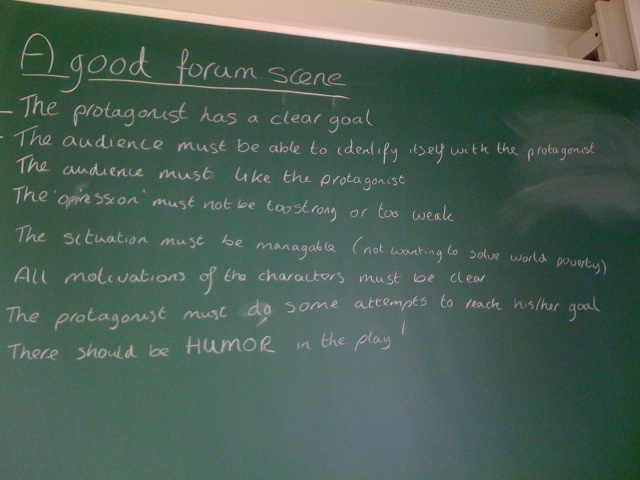 A good forum scene
- The protagonist has a clear goal
- The audience must be able to identify itself with the protagonist
The audience must like the protagonist
The 'opression' must not be too strong or too weak
The situation must be managable (not wanting to solve world poverty)
All motivations of the charactors must be clear
The protagonist must do some attempts to reach his/her goal
There should be HUMOR in the play!